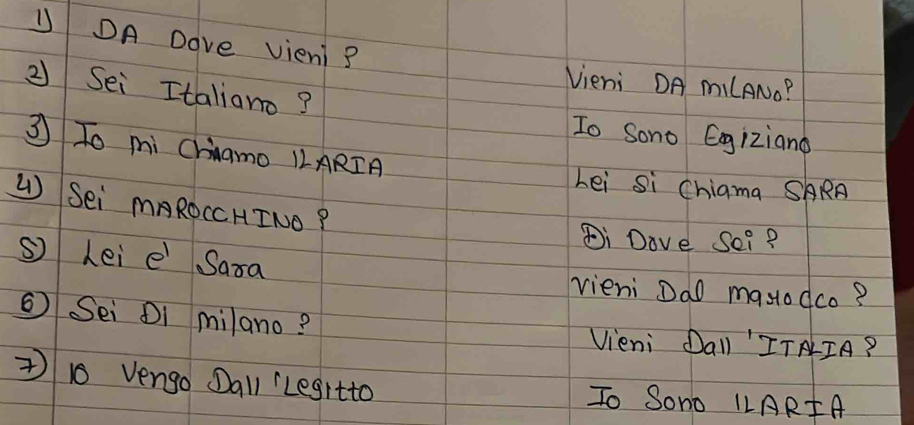 1) DA Dove vieni ?
2) Sei Italiano ?
3) Io mi Chiamo ILARIA
4) Sei MAROCCHINO ?
5) Lei e' Sara
6) Sei Di milano ?
7) IO Vengo Dall 'Legitto
Vieni DA MILANO?
Io Sono Egiziano
Lei Si Chiama SARA
Di Dove Sei ?
vieni Dal marocco ?
Vieni Dall 'ITALIA ?
Io Sono ILARIA